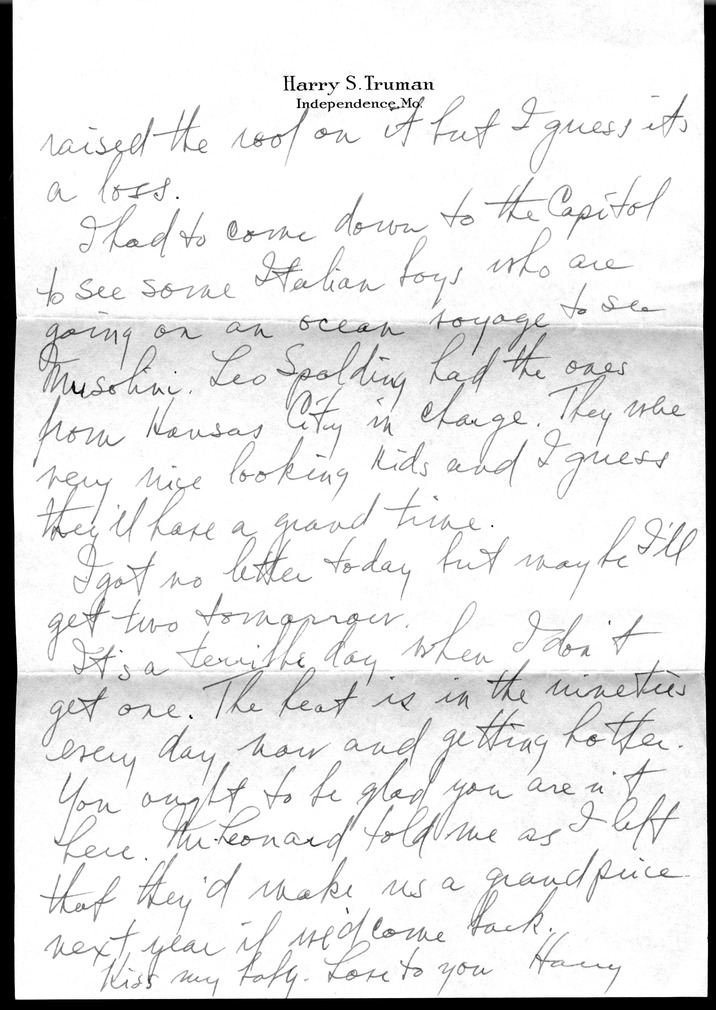 Harry S. Truman
Independence, Mo.
raised the roof on it but I guess its
a loss.
I had to come down to the Capitol
to see some Italian boys who are
going on an ocean voyage to see
Musolini. Leo Spalding had the ones
from Kansas City in charge. They were
very nice looking kids and I guess
they'll have a grand time.
I got no letter today but maybe I'll
get two tomorrow.
It's a terrible day when I don't
get one. The heat is in the nineties
every day now and getting hotter.
You ought to be glad you aren't
here. Mr. Leonard told me as I left
that they'd make us a grand price
next year if we'd come back.
Kiss my baby. Love to you Harry